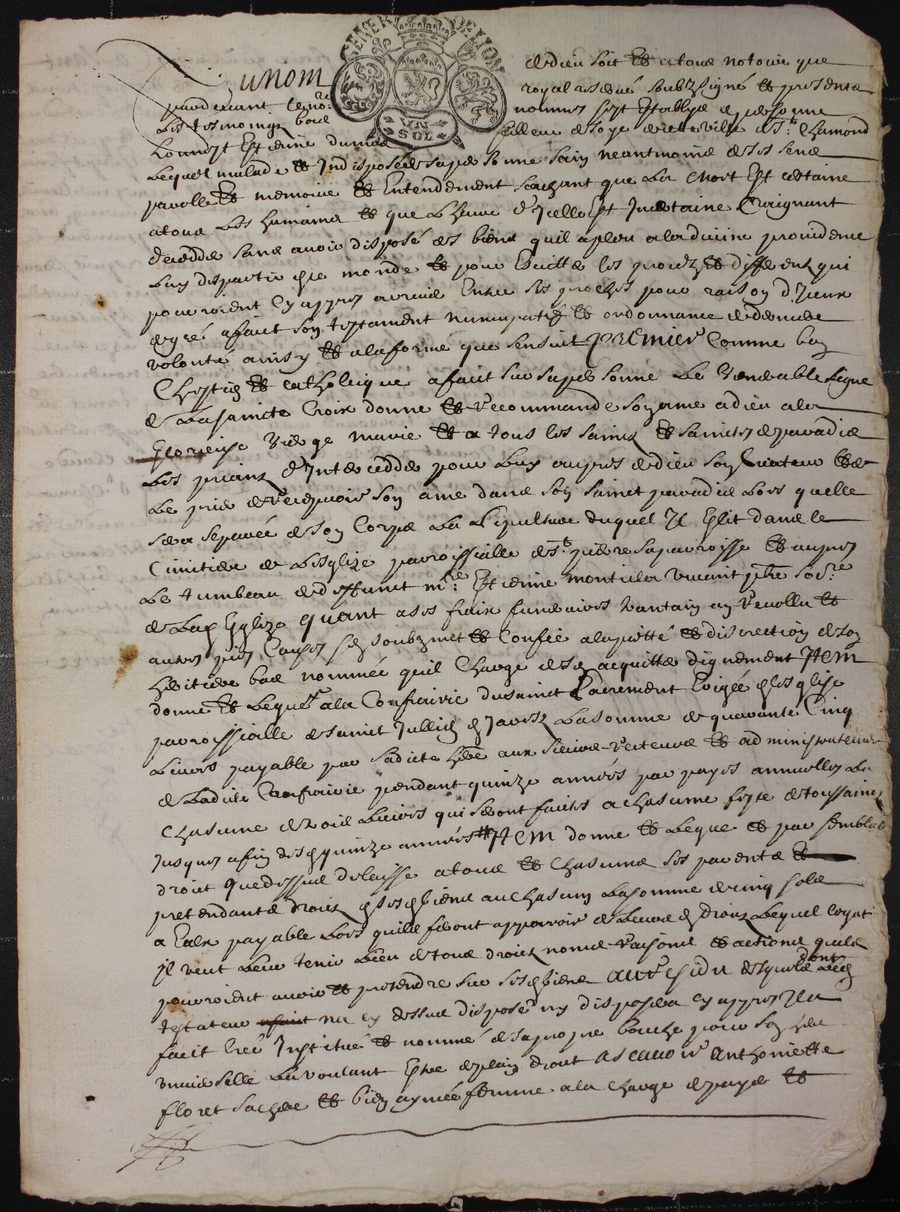 Au nom de dieu soit et a tous notoire que
pardevant le no.re royal reservé soubzsigné et presents
les tesmoings bas nommes s'est estably en personne
honneste Estienne dumas de st. chamond
Lequel malade et Indisposé de sa personne sain neantmoins de ses sens
parolle et memoire et Entendement scachant que la mort Est certaine
a tous les humains et que L'heure d'Jcelle Est Incertaine Craignant
deceder sans avoir disposé des biens quil a pleu a la divine providence
Luy despartir en ce monde et pour Esvitter les procez et differents qui
pourroient cy appres arriver Entre ses proches pour raison d'Jceux
de gré a fait son testament nuncupatif et ordonnance de derniere
volonté ainsy et a la forme que sensuit PREMIER Comme bon
Chrestien et catholicque a fait sur sa personne Le Venerable signe
de La saincte Croix donne et recommande son ame a dieu a la
Glorieuse vierge marie et a tous les saints et saintes de paradis
Les priant d'Interceder pour Luy aupres de dieu son Createur et
Le prie de recepvoir son ame dans son sainct paradis Lors quelle
sera separée de son Corps La sepulture duquel Jl Eslit dans le
Cimitiere de L'esglize parroissialle de st. pierre sa parroisse et aupres
Le tumbeau de deffunct mre. Estienne montellier vivant pbre soc.re
de Lad Esglize QUANT a ses fraix funeraires Luminaire
autres pies Causes sen soubzmet et Confie a la pietté et discrection de son
heritiere bas nommée quil Charge de s'en acquitter dignement JTEM
donne et Legue a la Confrairie du sainct sacrement Erigée en Lesglise
parroissialle de sainct Jullien en Jarestz La somme de quarante Cinq
Livres payable par sadicte here aux sieurs recteurs et administrateurs
de Ladicte Confrairie pendant quinze années par payes annuelles de
Chascune de trois Livres qui seront faictes a chascune feste de toussaincts
Jusques a fin desd quinze années JTEM donne et Legue et par semblable
droit que dessus delaisse a tous et chascuns ses parents et
pretendants droit en sesd biens a un chascun La somme de cinq solz
a Eulx payable Lors quilz feront apparroir de Leurs droictz Lequel Legat
Jl veut Leur tenir Lieu de tous droictz noms raisons et actions quilz
pourroient avoir et pretendre sur sesd biens AU RESIDU desquels dont Led
testateur na cy dessus disposé ny disposera cy appres Jl a
faict creé Jnstitué et nommé de sa propre bouche pour son here
universelle La voulant Estre de plain droit ASCAVOIR Anthoinette
floret sa chere et bien aymée femme a la charge de payer et